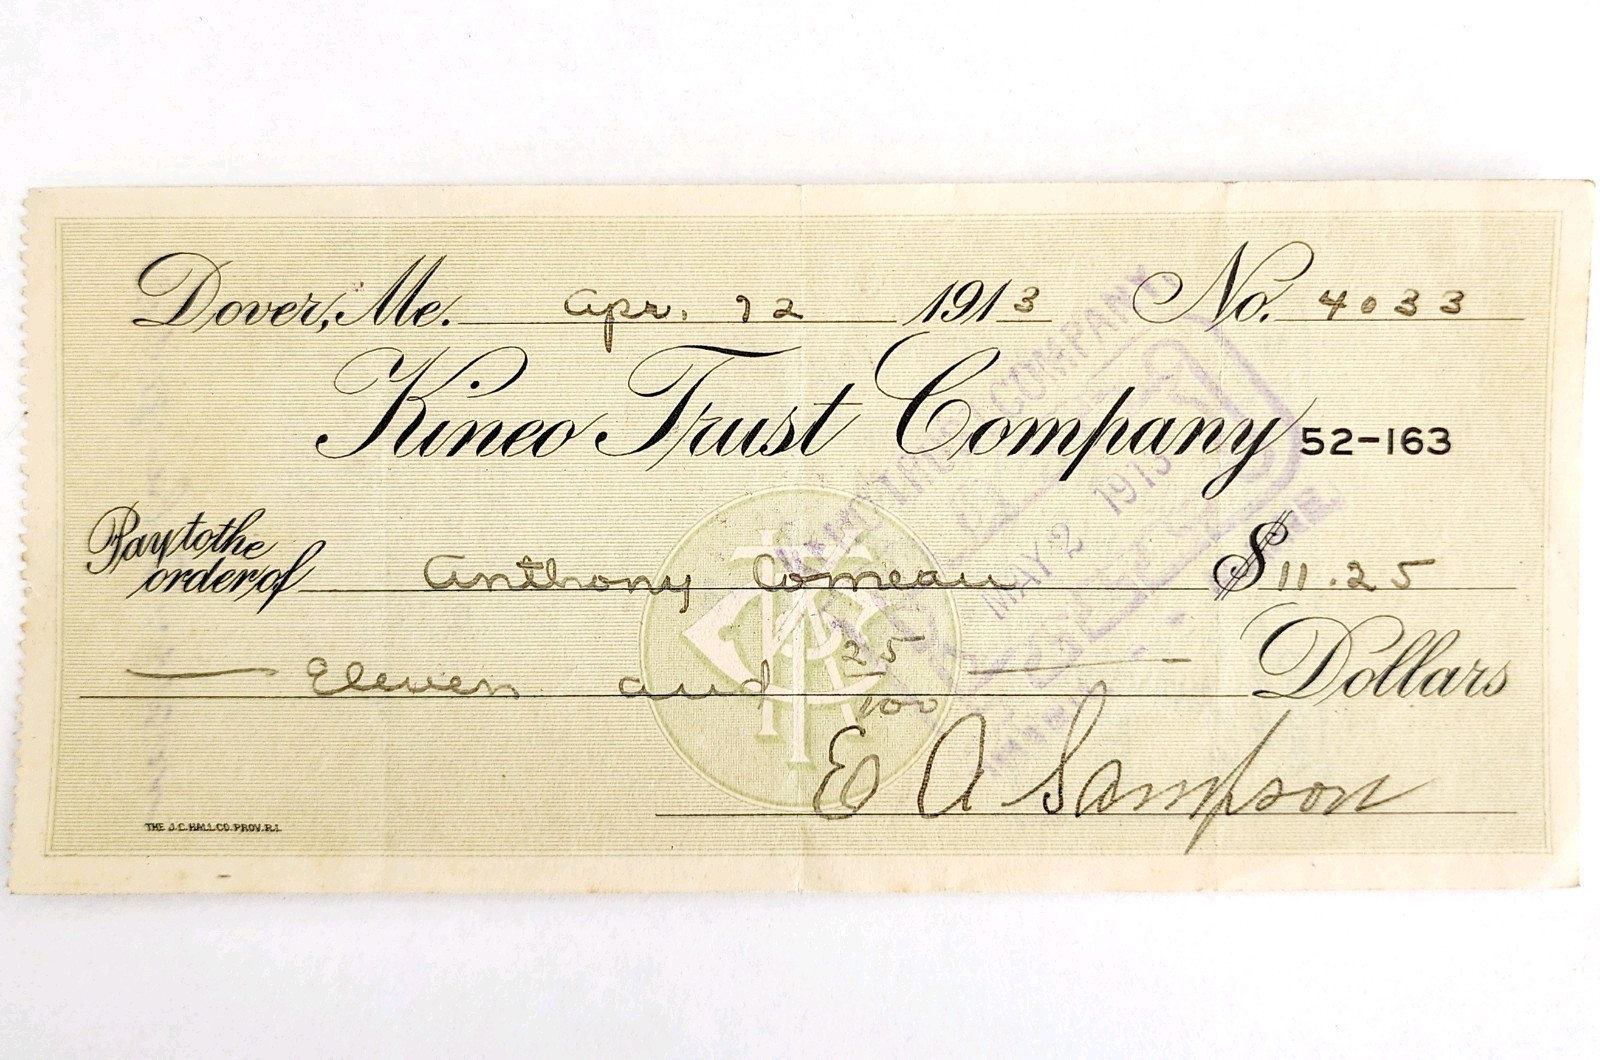 Dover, Me. Apr. 12 1913 No. 4033
Kineo Trust Company 52-163
Pay to the order of Anthony Comeau $ 11.25
Eleven and 25/100 Dollars
E A Sampson
THE J.C. HALL CO. PROV. R.I.
COMPANY,
MAY 2 1913